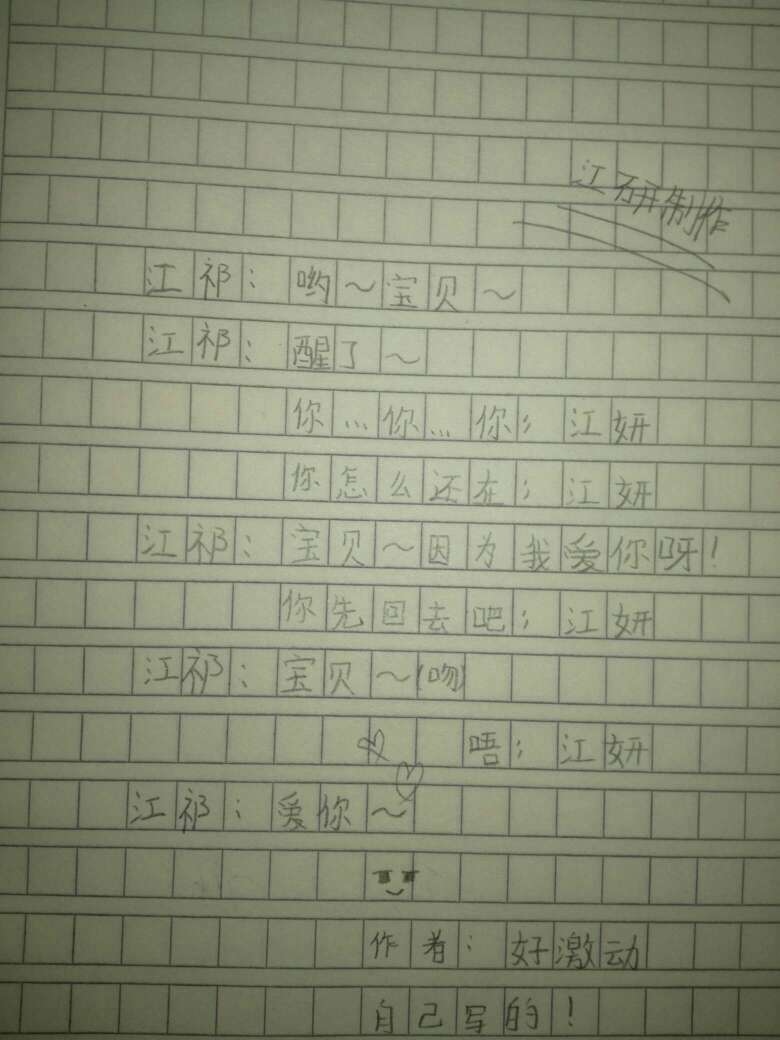 江研制作
江祁：哟～宝贝～
江祁：醒了～
你…你…你；江妍
你怎么还在；江妍
江祁：宝贝～因为我爱你呀！
你先回去吧；江妍
江祁：宝贝～(吻)
唔；江妍
江祁：爱你～
作者：好激动
自己写的！